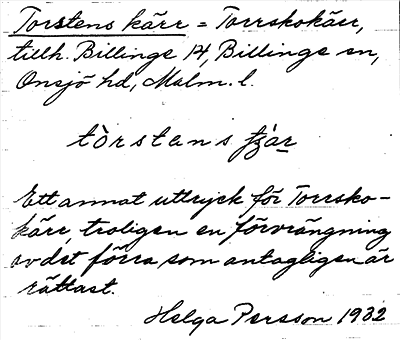 Torstens kärr = Torrskokärr,
tillh. Billinge 14, Billinge sn,
Onsjö hd, Malm. l.
tòrstans fzár
Ett annat uttryck för Torrsko-
kärr, troligen en förvrängning
av det förra som antagligen är
rättast.
Helga Persson 1932